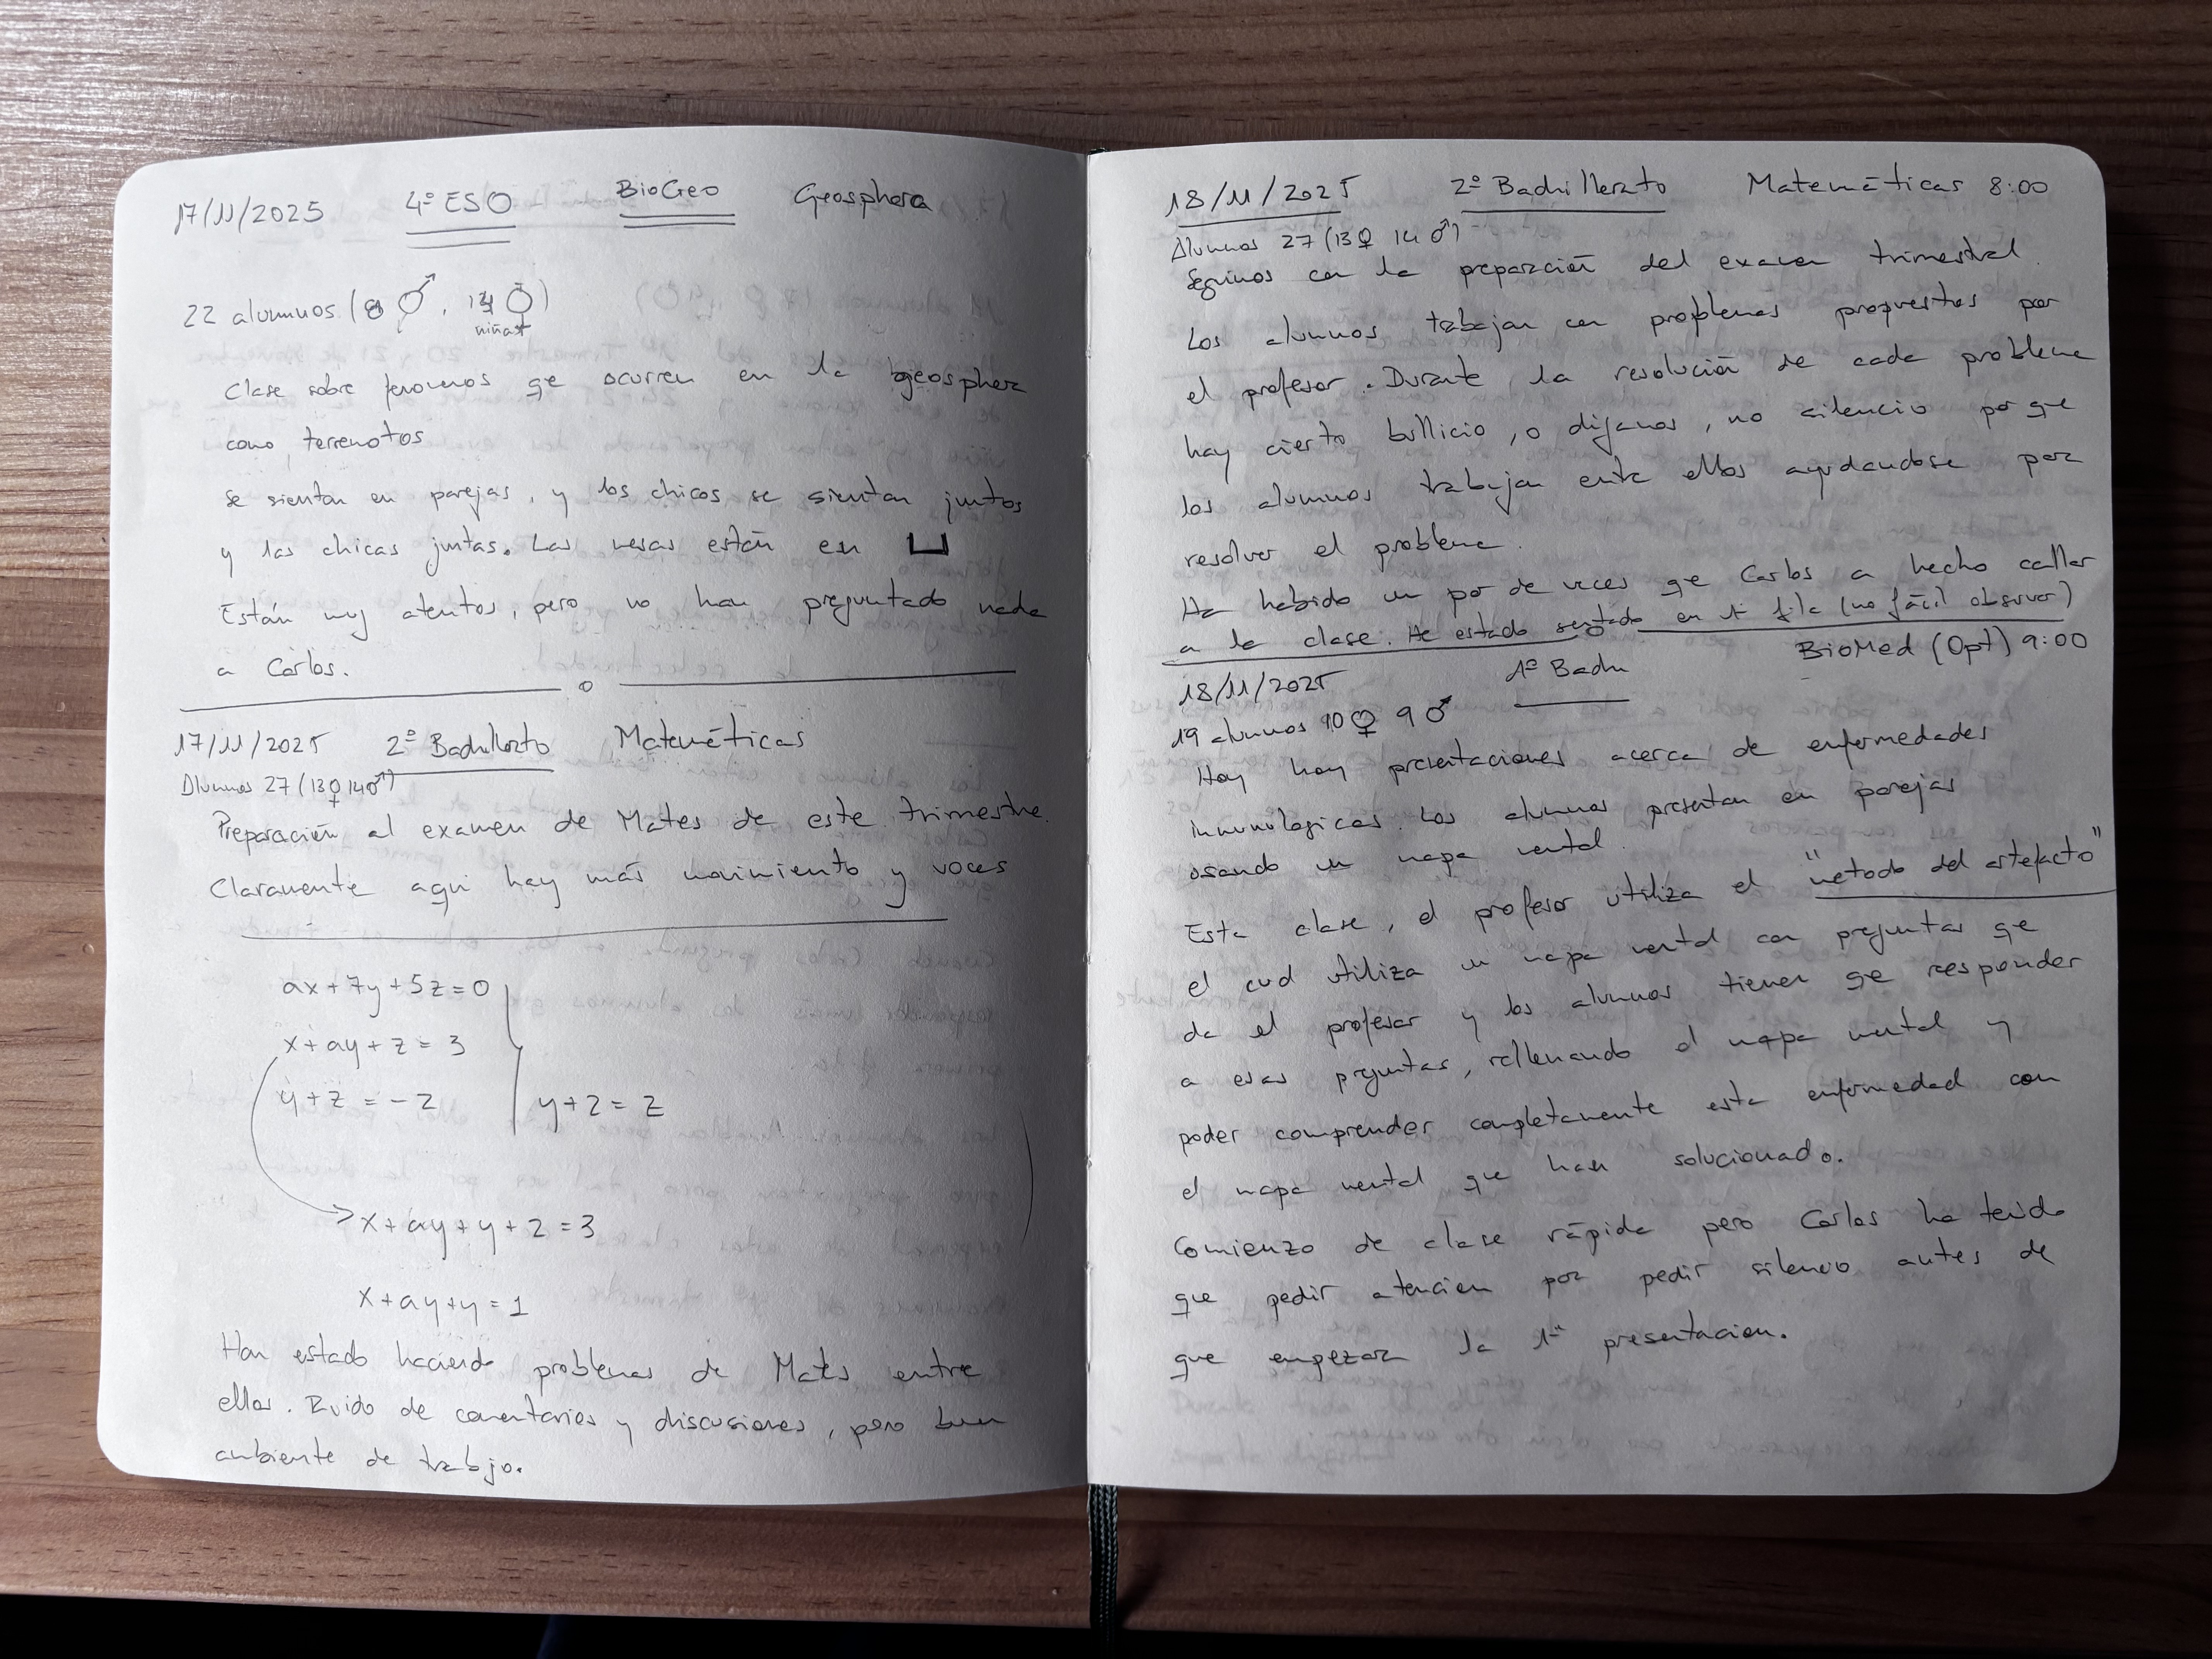 17/11/2025 4º ESO BioGeo Geosphera
22 alumnos (8 ♂, 14 ♀)
niñas
Clase sobre fenomenos qe ocurren en la geosphera
como terremotos
Se sientan en parejas, y los chicos se sientan juntos
y las chicas juntas. Las mesas están en ⊔
Están muy atentos, pero no han preguntado nada
a Carlos.
17/11/2025 2º Bachillerato Matemáticas
Alumnos 27 (13♀ 14♂)
Preparación al examen de Mates de este trimestre.
Claramente aqui hay más movimiento y voces
ax + 7y + 5z = 0
x + ay + z = 3
y + z = -2
y + 2 = z
x + ay + y + 2 = 3
x + ay + y = 1
Han estado haciendo problemas de Mates entre
ellos. Ruido de comentarios y discusiones, pero buen
ambiente de trabajo.
18/11/2025 2º Bachillerato Matemáticas 8:00
Alumnos 27 (13♀ 14♂)
Seguimos con la preparación del examen trimestral.
Los alumnos trabajan con problemas propuestos por
el profesor. Durante la resolución de cada problema
hay cierto bullicio, o digamos, no silencio por qe
los alumnos trabajan entre ellos ayudandose par
resolver el problema.
Ha habido un par de veces qe Carlos a hecho callar
a la clase. He estado sentado en 1ª fila (no fácil observar)
18/11/2025 1º Bach BioMed (Opt) 9:00
19 alumnos 10♀ 9♂
Hoy hay presentaciones acerca de enfermedades
inmunologicas. Los alumnos presentan en parejas
usando un mapa mental.
Esta clase, el profesor utiliza el "metodo del artefacto"
el cual utiliza un mapa mental con preguntas qe
da el profesor y los alumnos tienen qe responder
a esas preguntas, rellenando el mapa mental y
poder comprender completamente esta enfermedad con
el mapa mental que han solucionado.
Comienzo de clase rápida pero Carlos ha tenido
que pedir atencion por pedir silencio antes de
que empezar la 1ª presentacion.